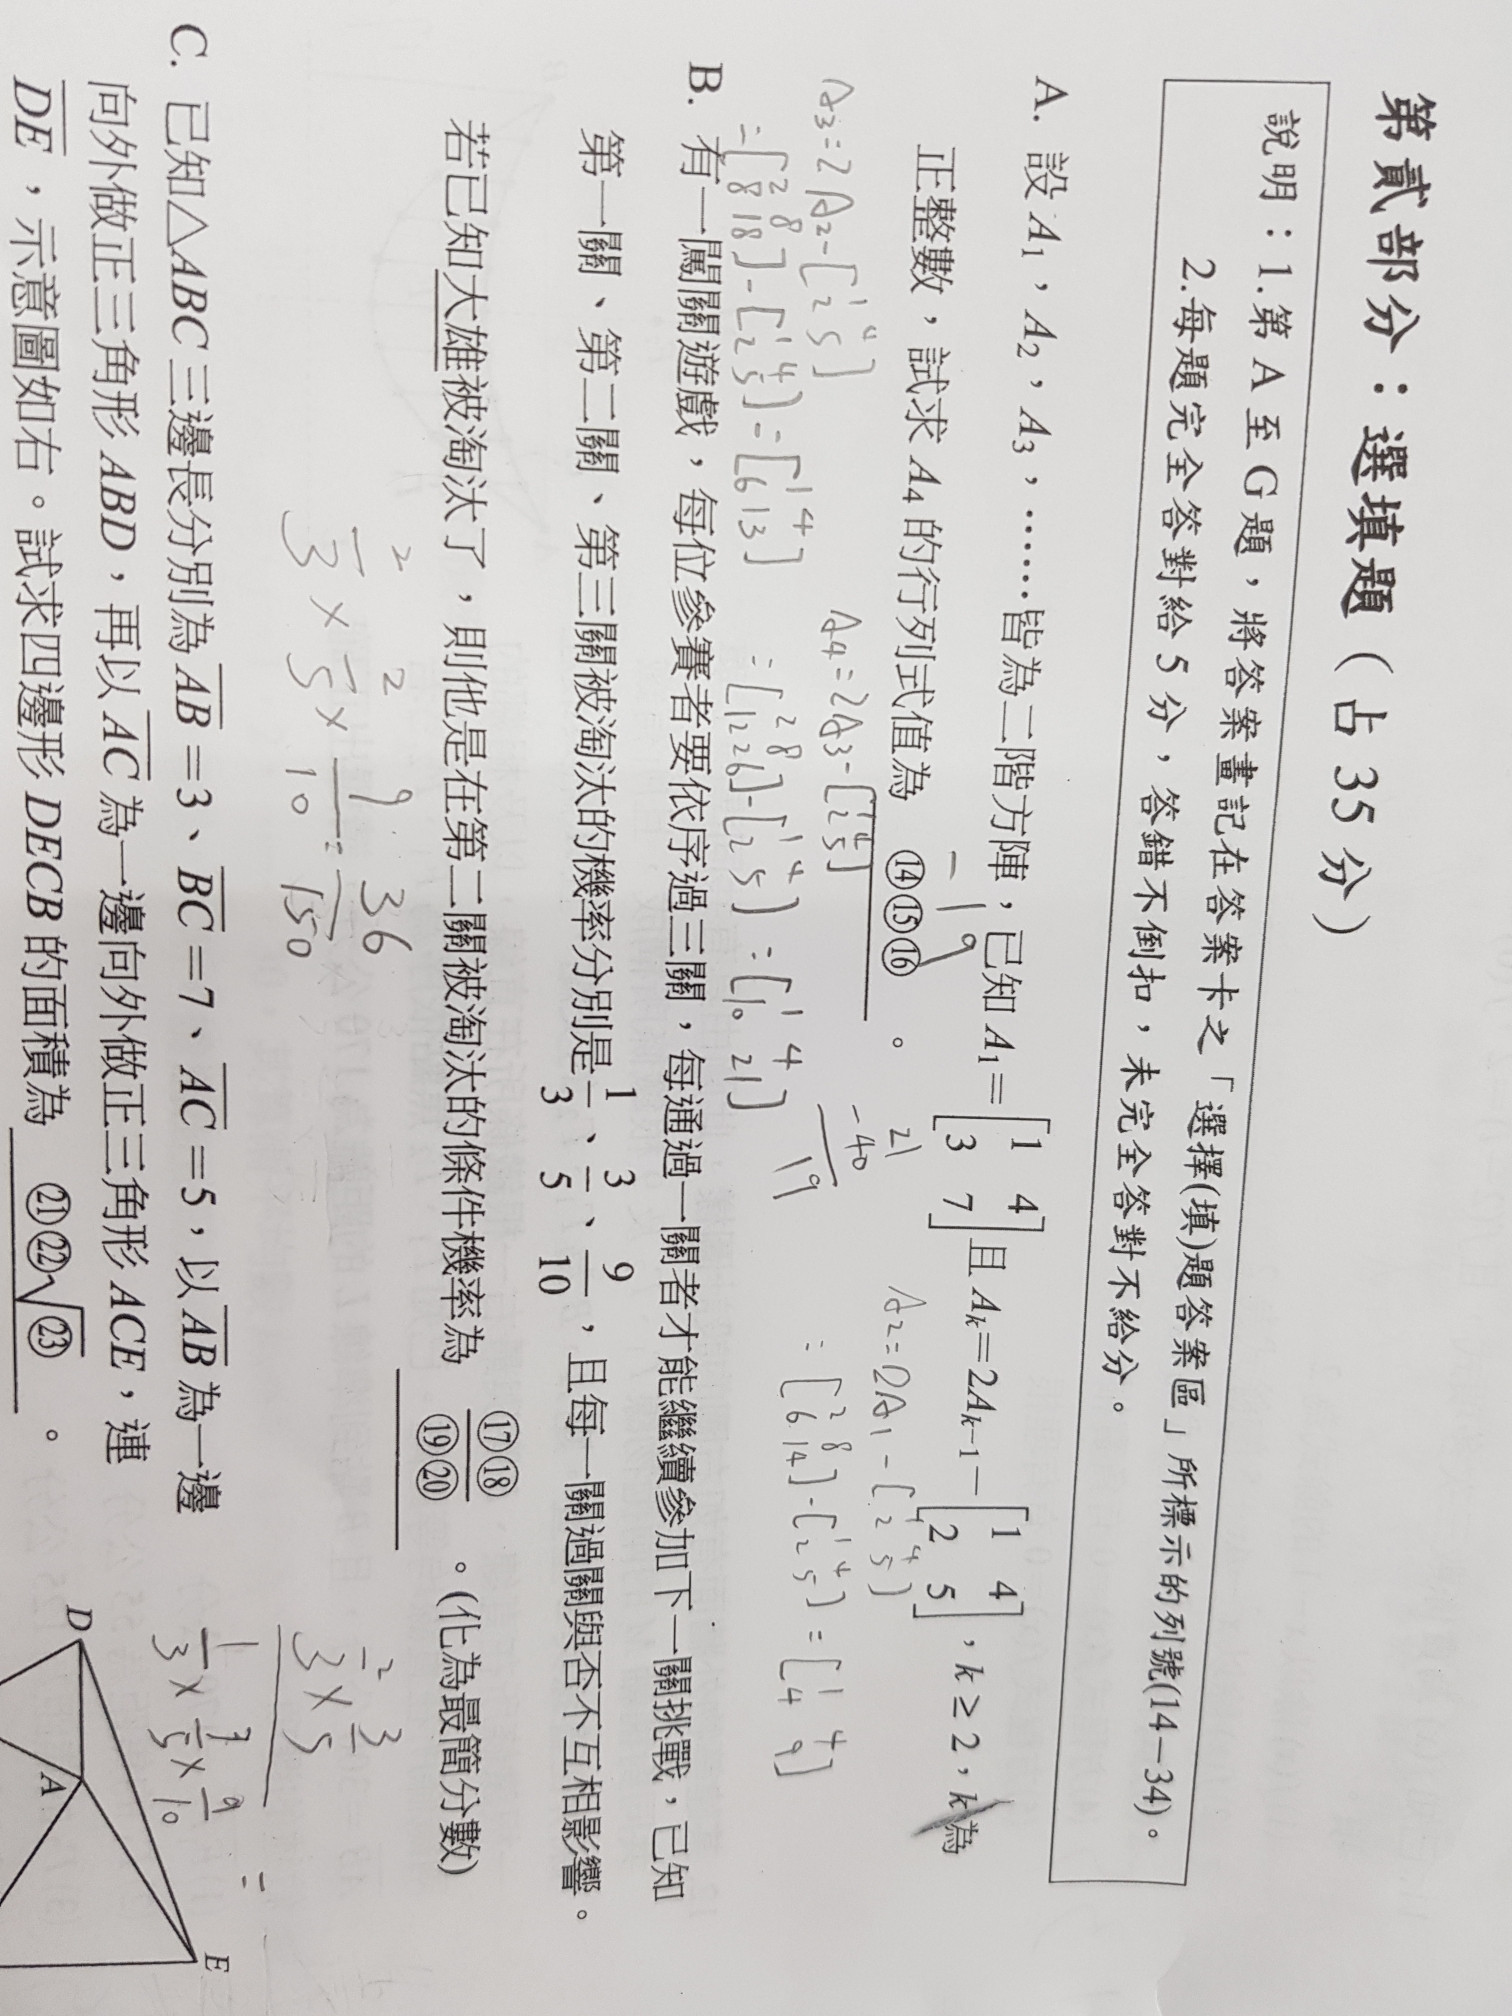 第貳部分：選填題（占35分）
說明：1.第A至G題，將答案畫記在答案卡之「選擇(填)題答案區」所標示的列號(14—34)。
2.每題完全答對給5分，答錯不倒扣，未完全答對不給分。
A. 設A₁，A₂，A₃，……皆為二階方陣，已知A₁=[1 4; 3 7]且Aₖ=2Aₖ₋₁−[1 4; 2 5]，k≥2，k為
正整數，試求A₄的行列式值為 ⑭⑮⑯ 。
-19
A₂=2A₁-[1 4; 2 5]
=[2 8; 6 14]-[1 4; 2 5]=[1 4; 4 9]
A₃=2A₂-[1 4; 2 5]
=[2 8; 8 18]-[1 4; 2 5]=[1 4; 6 13]
A₄=2A₃-[1 4; 2 5]
=[2 8; 12 26]-[1 4; 2 5]=[1 4; 10 21]
21
-40
19
B. 有一闖關遊戲，每位參賽者要依序過三關，每通過一關者才能繼續參加下一關挑戰，已知
第一關、第二關、第三關被淘汰的機率分別是1/3、3/5、9/10，且每一關過關與否不互相影響。
若已知大雄被淘汰了，則他也是在第二關被淘汰的條件機率為 ⑰⑱/⑲⑳ 。(化為最簡分數)
2/3×2/5×9/10=36/150
2/3×3/5
1/3×3/5×9/10
=
C. 已知△ABC三邊長分別為AB=3、BC=7、AC=5，以AB為一邊
向外做正三角形ABD，再以AC為一邊向外做正三角形ACE，連
DE，示意圖如右。試求四邊形DECB的面積為 ㉑㉒√㉓ 。
D
A
E